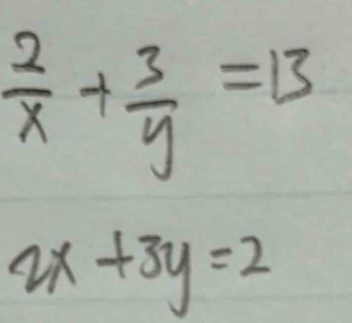 2/x + 3/y = 13
2x + 3y = 2